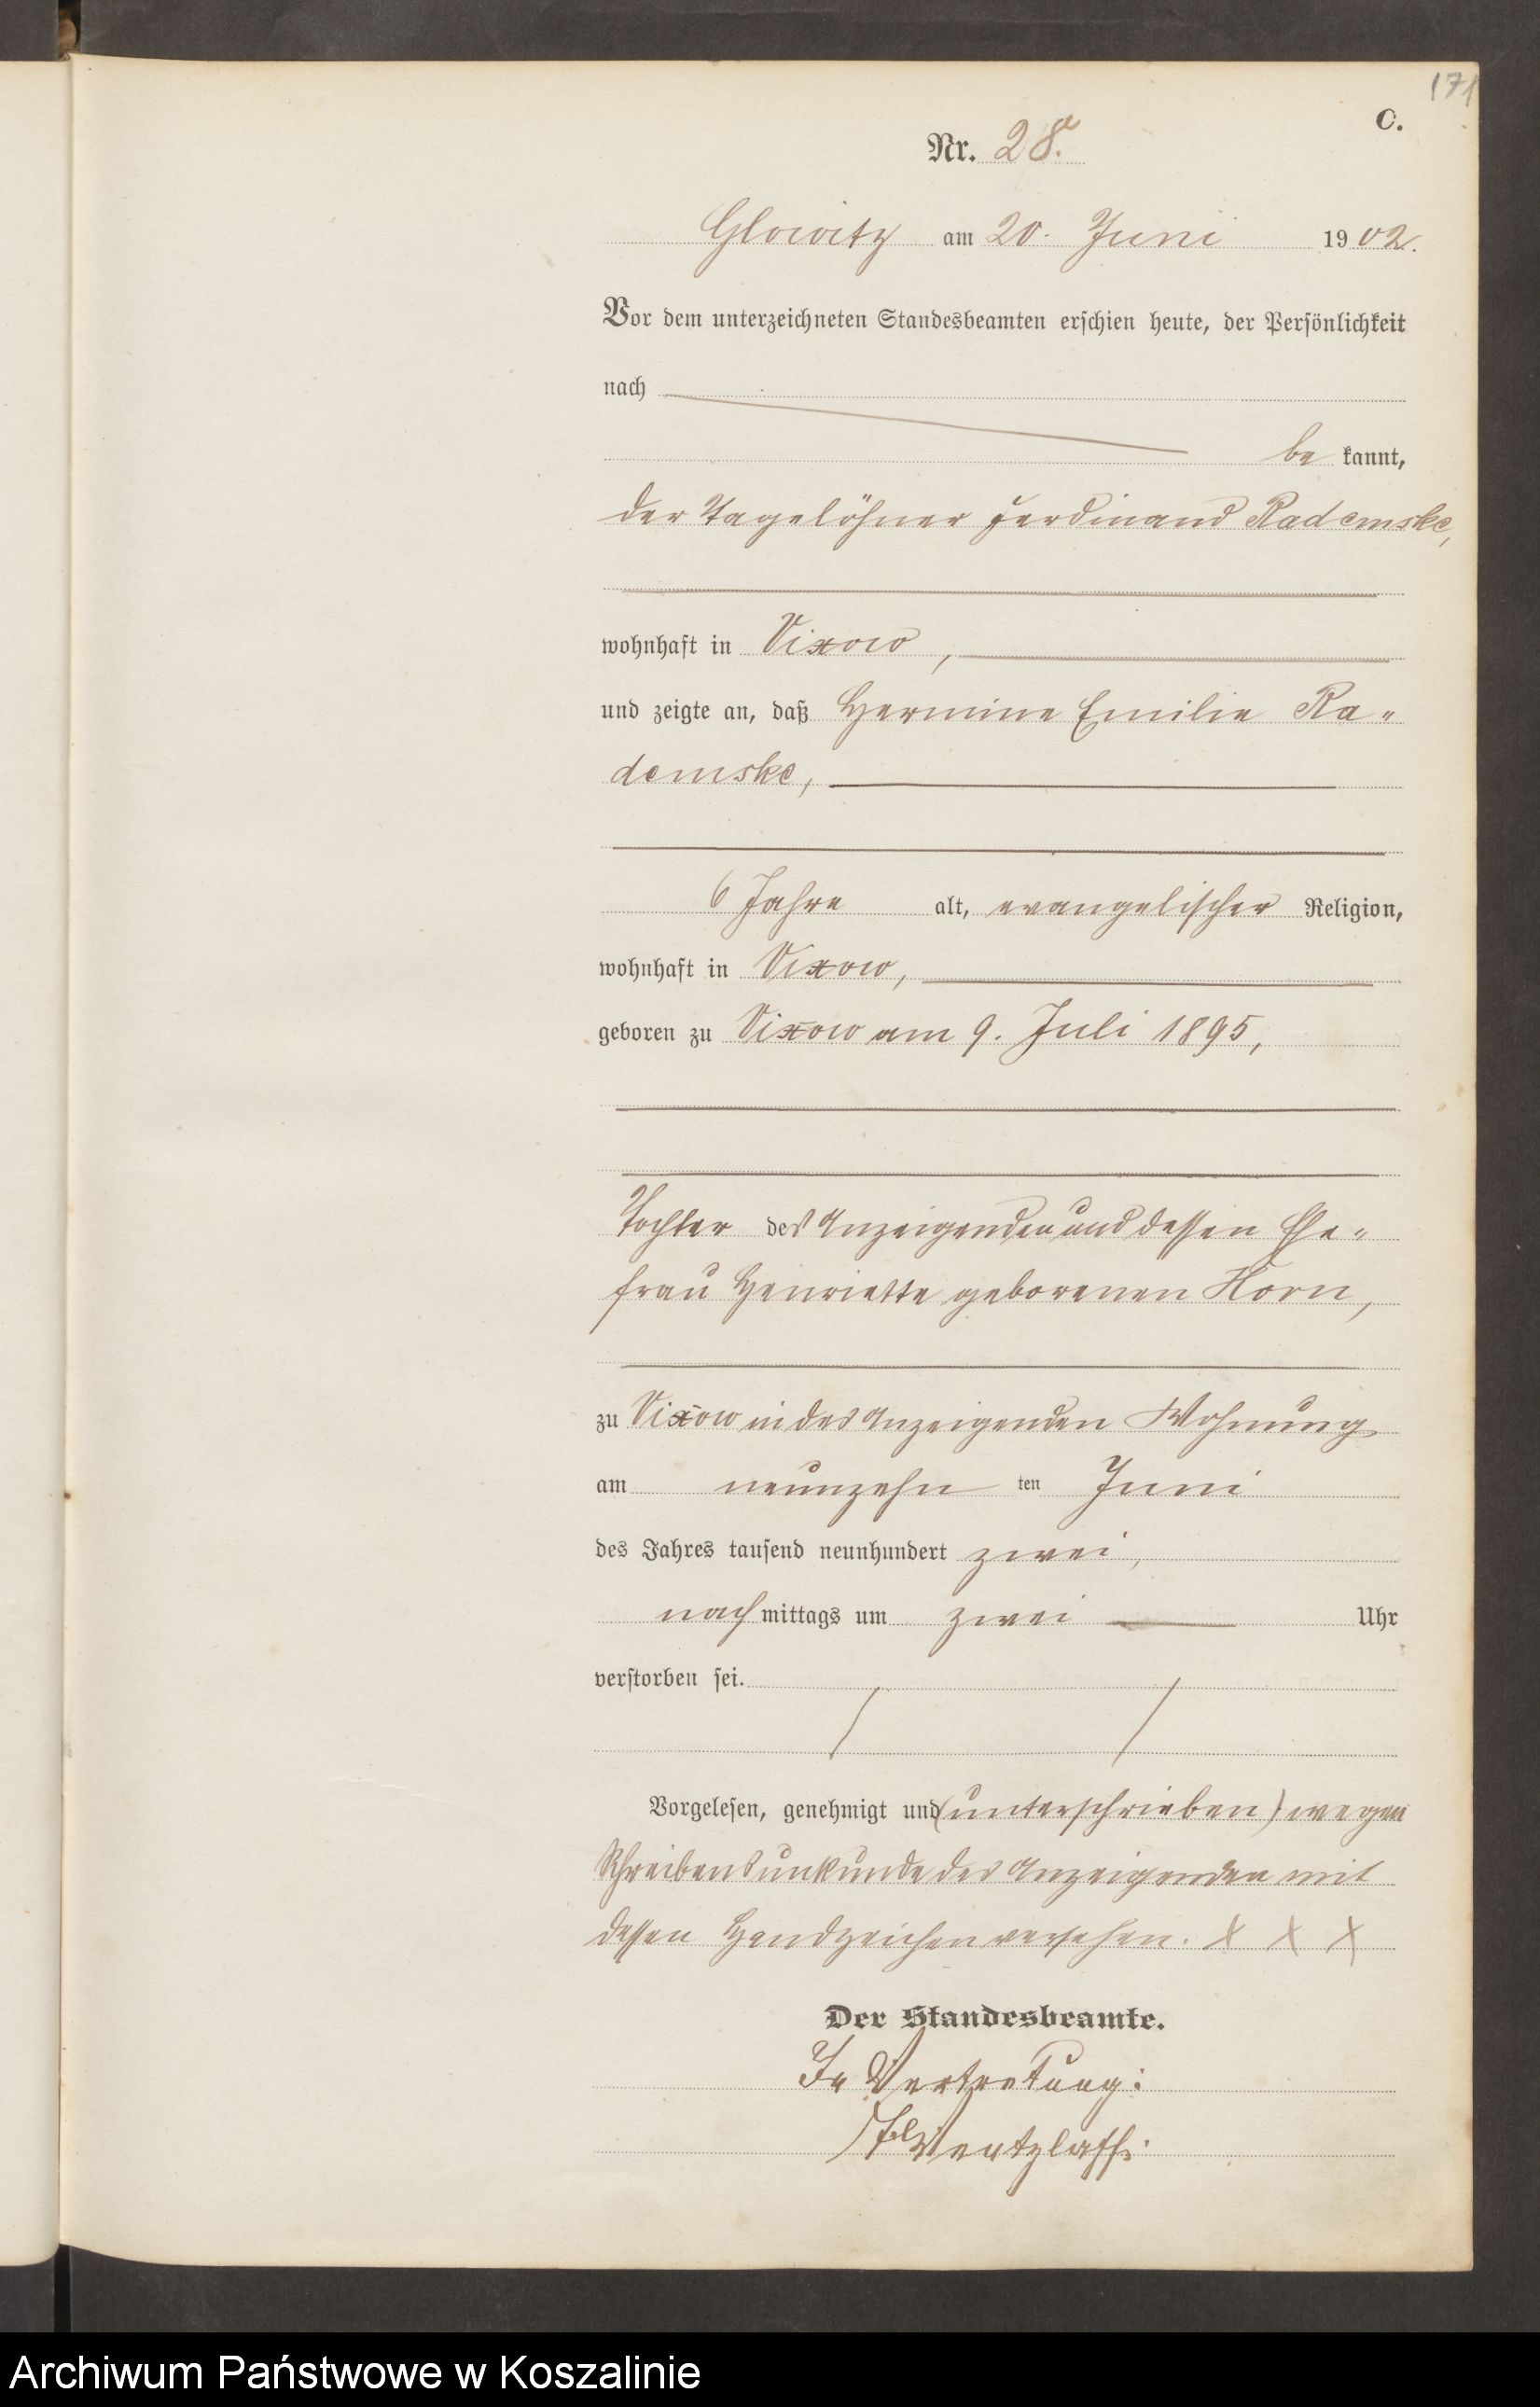 171
C.
Nr. 28.
Glowitz am 20. Juni 1902.
Vor dem unterzeichneten Standesbeamten erschien heute, der Persönlichkeit
nach
be kannt,
der Tagelöhner Ferdinand Rademske,
wohnhaft in Vixow,
und zeigte an, daß Hermine Emilie Ra-
demske,
6 Jahre alt, evangelischer Religion,
wohnhaft in Vixow,
geboren zu Vixow am 9. Juli 1895,
Tochter des Anzeigenden und dessen Ehe-
frau Henriette geborenen Horn,
zu Vixow in des Anzeigenden Wohnung
am neunzehn ten Juni
des Jahres tausend neunhundert zwei,
nach mittags um zwei Uhr
verstorben sei.
Vorgelesen, genehmigt und (unterschrieben) wegen
Schreibensunkunde des Anzeigenden mit
dessen Handzeichen versehen. X X X
Der Standesbeamte.
In Vertretung:
Wentzlaff.
Archiwum Państwowe w Koszalinie